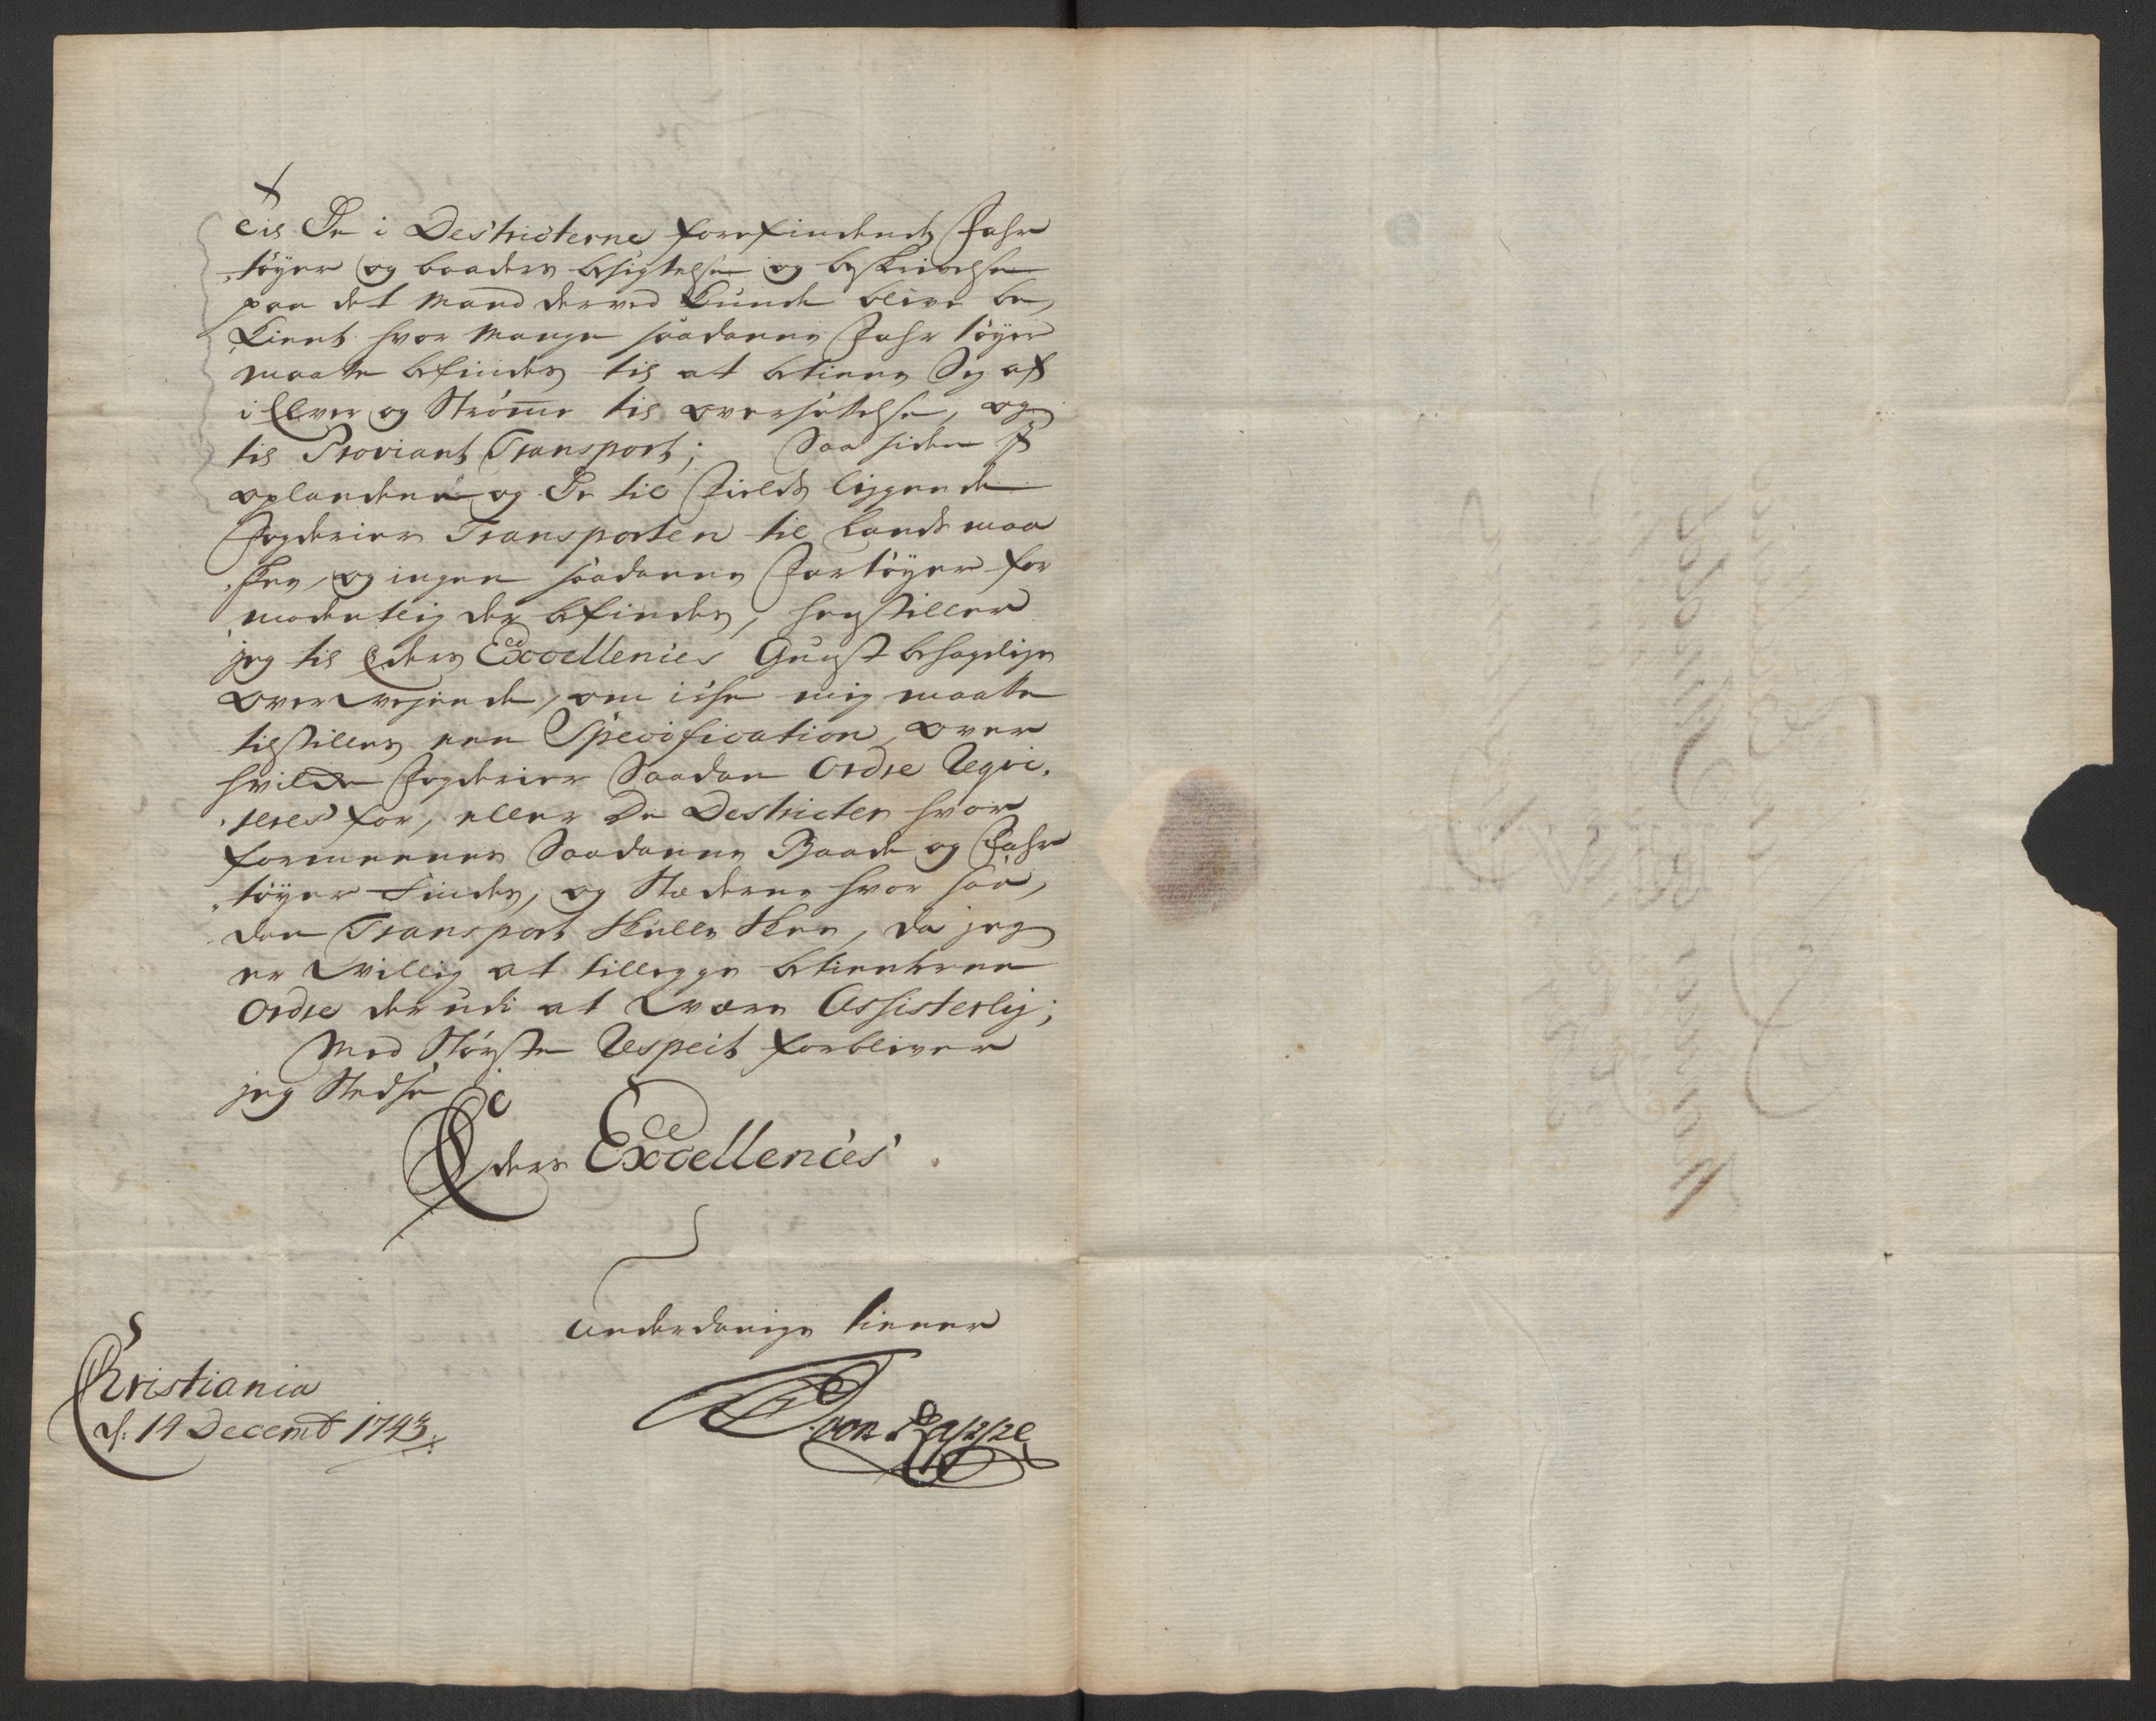 til De i Destricterne forefindende Fahr
tøyer og baaders besigtelse og beskrivelse
paa det Mand derved kunde blive be,
kient hvor mange saadanne Fahr tøyer
maatte befindes til at betiene Sig af
i Elver og Strømme til oversættelse, og
til Proviant Transport; Saa siden i
oplandene og De til Fields liggende
Fogderier Transporten til Lands maa
skee, og ingen saadanne Fartøyer for
modentlig der befindes, henstiller
jeg til Eders Excellences Gunst behagelige
overvejende, om icke mig maatte
tilstilles een Specification, over
hvilcke Fogderier Saadan Ordre Reqvi,
reres for, eller De Destricter hvor
formeenes Saadanne Baade og Fahr
tøyer findes, og Stæderne hvor saa,
dan Transport skulle skee, da jeg
er villig at tillegge betienterne
Ordre derudi at være Assisterlig;
Med Største Respect forbliver
jeg Stedse
Eders Excellences
underdanige tiener
Christiania
d: 14 Decemb 1743
von Rappe